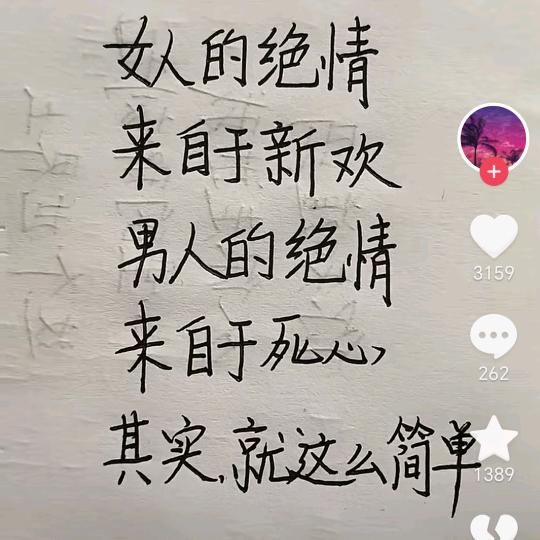 女人的绝情
来自于新欢
男人的绝情
来自于死心
其实,就这么简单
3159
262
1389